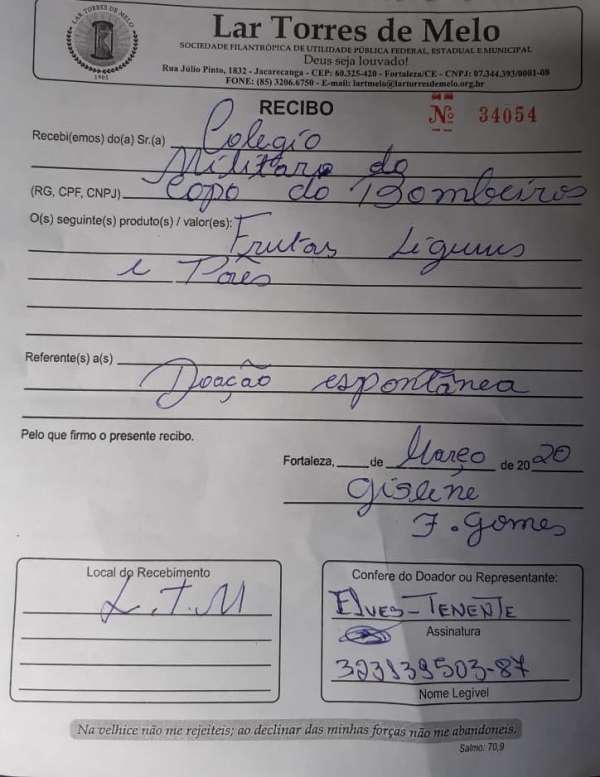 LAR TORRES DE MELO
1905
Lar Torres de Melo
SOCIEDADE FILANTRÓPICA DE UTILIDADE PÚBLICA FEDERAL, ESTADUAL E MUNICIPAL
Deus seja louvado!
Rua Júlio Pinto, 1832 - Jacarecanga - CEP: 60.325-420 - Fortaleza/CE - CNPJ: 07.344.393/0001-08
FONE: (85) 3206.6750 - E-mail: lartmelo@lartorresdemelo.org.br
RECIBO
Nº 34054
Recebi(emos) do(a) Sr.(a) Colegio
Militar do
(RG, CPF, CNPJ) Copo do Bombeiros
O(s) seguinte(s) produto(s) / valor(es): Frutas Ligumes
e Pães
Referente(s) a(s)
Doação espontânea
Pelo que firmo o presente recibo.
Fortaleza, de Março de 2020
Gislene
F. Gomes
Local do Recebimento
L.T.M
Confere do Doador ou Representante:
ELVES-TENENTE
Assinatura
323139503-87
Nome Legivel
Na velhice não me rejeiteis; ao declinar das minhas forças não me abandoneis.
Salmo: 70,9